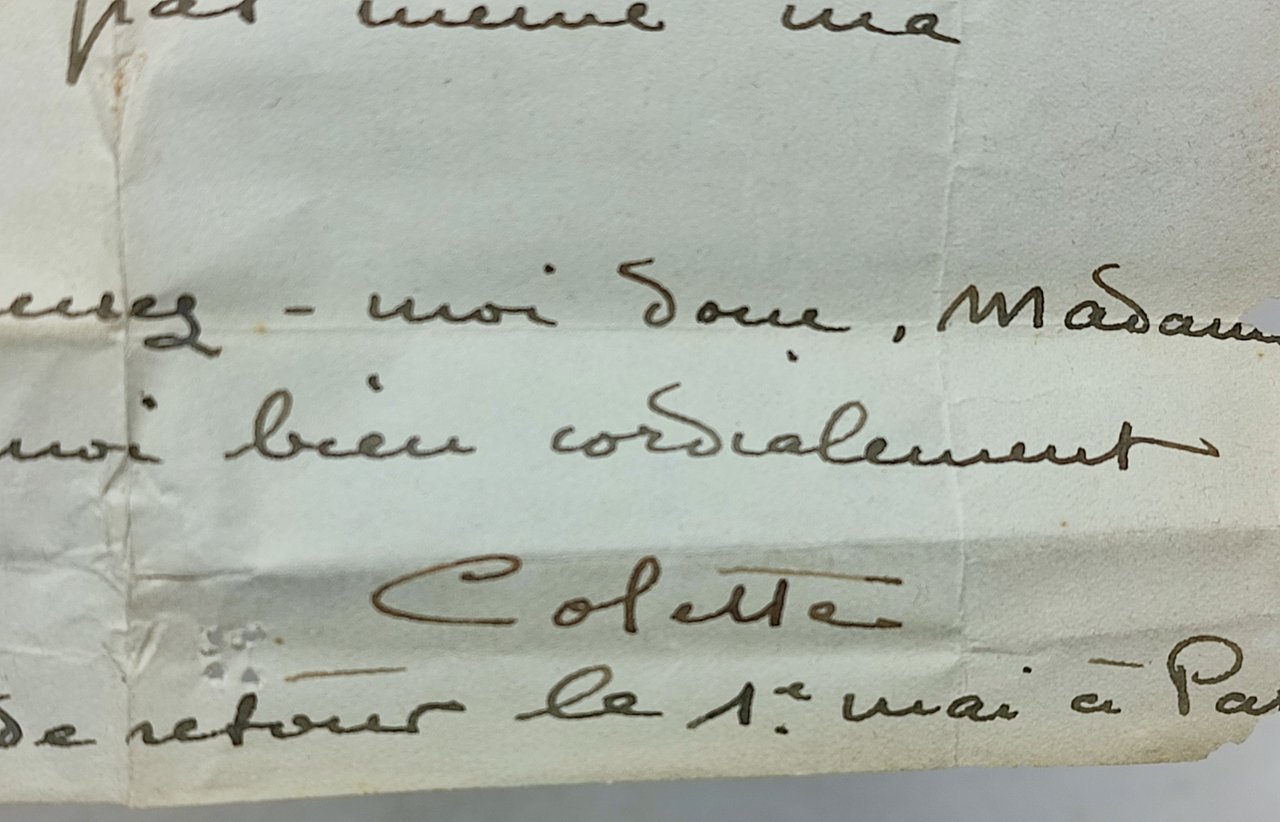 pas meme ma
- moi donc, Madam
moi bien cordialement
Colette
de retour le 1e mai à Pa